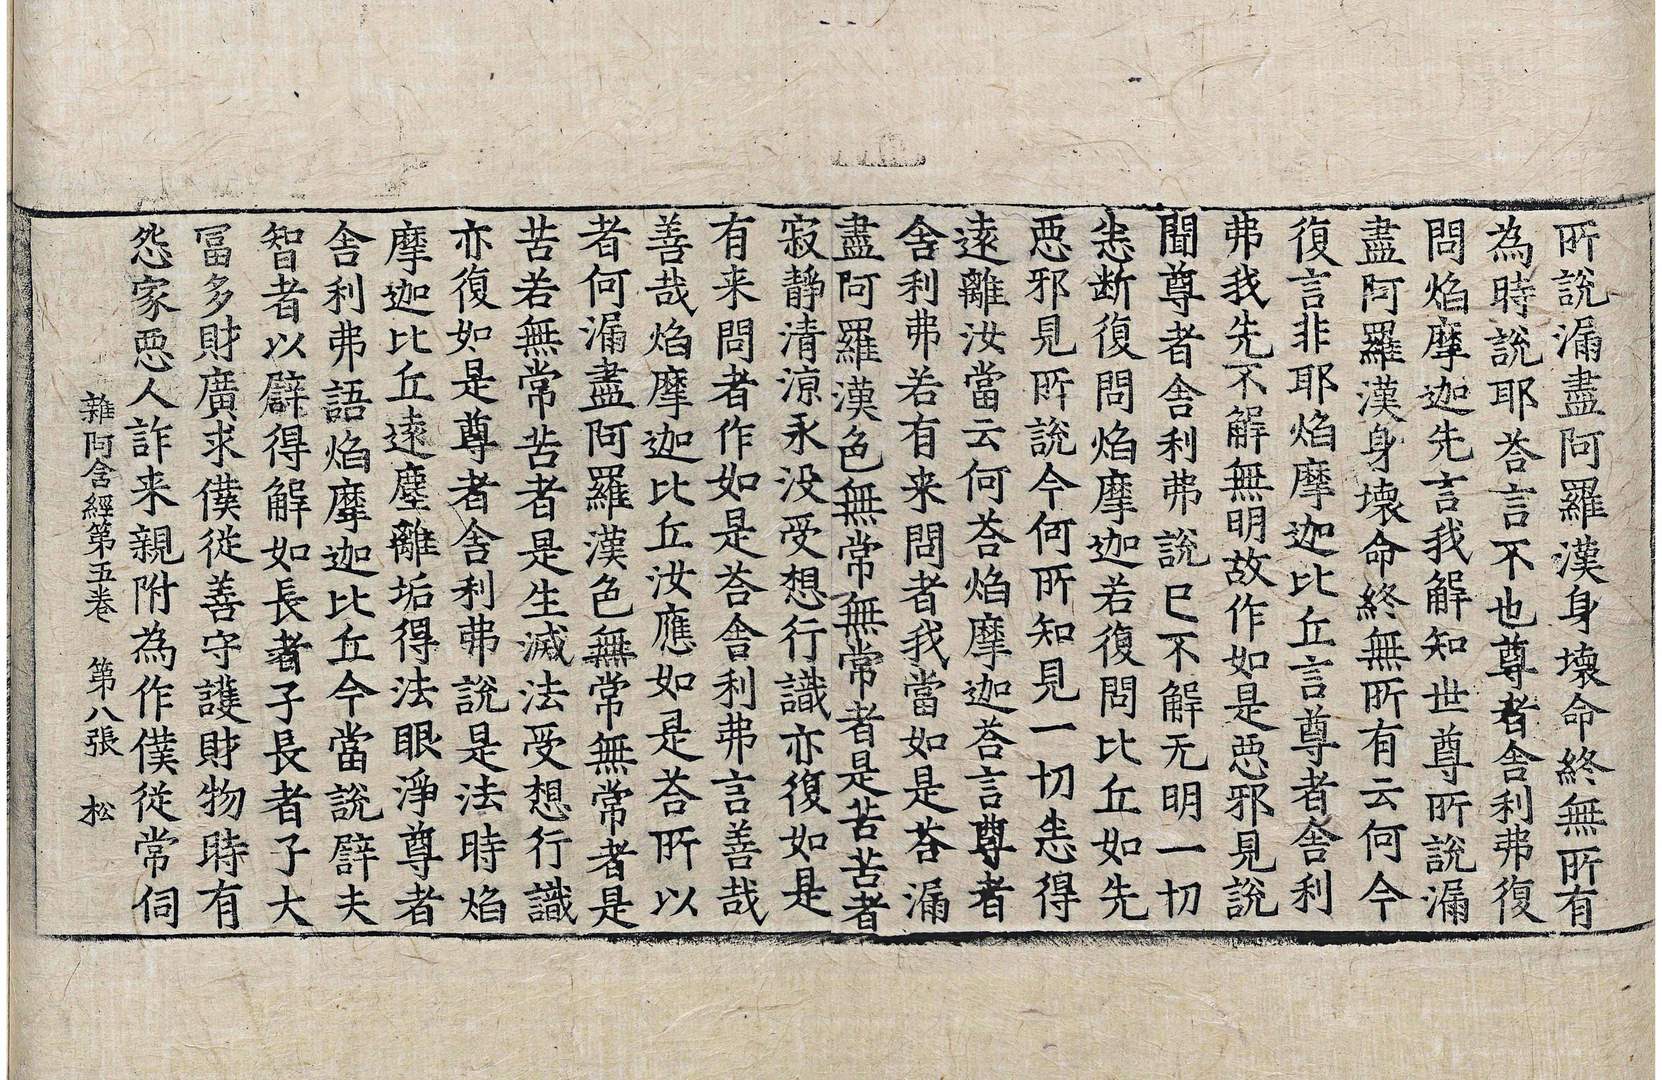 所說漏盡阿羅漢身壞命終無所有
為時說耶荅言不也尊者舍利弗復
問焰摩迦先言我解知世尊所說漏
盡阿羅漢身壞命終無所有云何今
復言非耶焰摩迦比丘言尊者舍利
弗我先不解無明故作如是惡邪見說
聞尊者舍利弗說已不解无明一切
悉断復問焰摩迦若復問比丘如先
惡邪見所說今何所知見一切悉得
遠離汝當云何荅焰摩迦荅言尊者
舍利弗若有来問者我當如是荅漏
盡阿羅漢色無常無常者是苦苦者
寂靜清涼永没受想行識亦復如是
有来問者作如是荅舍利弗言善哉
善哉焰摩迦比丘汝應如是荅所以
者何漏盡阿羅漢色無常無常者是
苦若無常苦者是生滅法受想行識
亦復如是尊者舍利弗說是法時焰
摩迦比丘遠塵離垢得法眼淨尊者
舍利弗語焰摩迦比丘今當說譬夫
智者以譬得解如長者子長者子大
冨多財廣求僕従善守護財物時有
怨家惡人詐来親附為作僕従常伺
雜阿含經第五卷 第八張 松